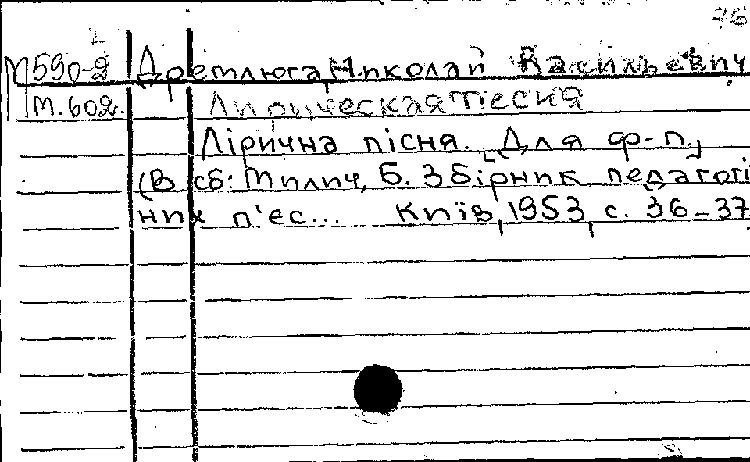 76
М590-2 Дремлюга, Николай Васильевич
М.602. Лирическая песня
Лірична пісня. [Для ф-п.]
(В сб: Милич, Б. Збірник педагогі
них п'єс... Київ, 1953, с. 36-37